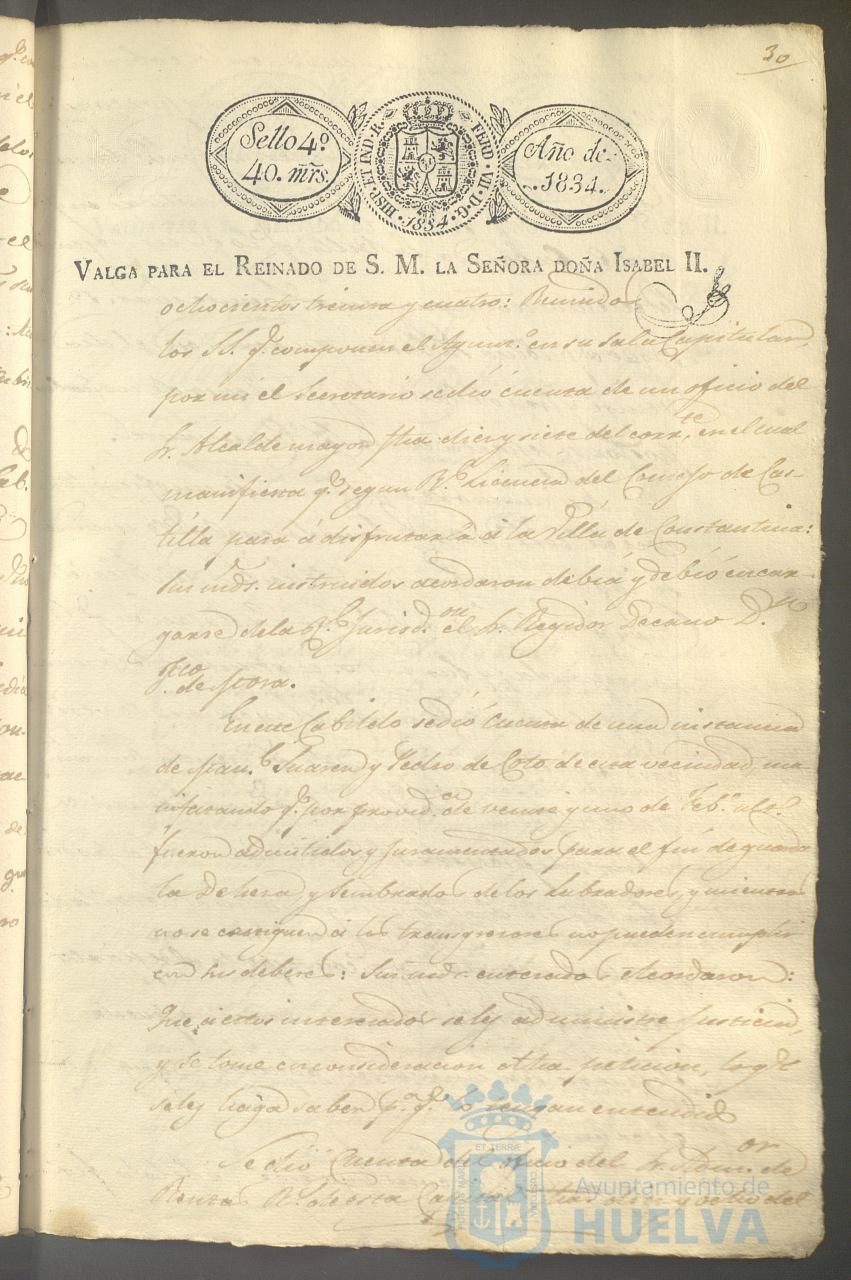 30
Sello 4º
40. mrs.
HISP. ET IND. R. FERD. VII. D. G.
1834
Año de
1834.
VALGA PARA EL REINADO DE S. M. LA SEÑORA DOÑA ISABEL II.
ochocientos treinta y cuatro: Reunidos
los SS. q.e componen el Ayun.to en su Sala Capitular,
por mi el Secretario se dió cuenta de un oficio del
Sr. Alcalde mayor fha diez y siete del corr.te en el cual
manifiesta q.e segun R.l Licencia del Consejo de Cas-
tilla para á disfrutarla á la Villa de Constantina:
Sus mds. instruidos acordaron debia y debió encar-
garse de la R.l Jurisd.on el Sr. Regidor Decano D.n
Fco. de Mora.
En este Cabildo se dió Cuenta de una instancia
de Man.l Suarez y Pedro de Coto de esta vecindad, ma
nifestando q.e por provid.a de veinte y uno de Feb.o ult.o
fueron admitidos y juramentados para el fin de guardar
la Dehesa y Sembrados de los Labradores, y mientras
no se castiguen á los transgresores no pueden cumplir
con sus deberes: Sus mds. enterados Acordaron:
Que á estos interesados se les administre Justicia,
y se tome en consideracion dha peticion, lo q.e
se les haga saber p.a q.e lo tengan entendido
Se dió Cuenta del oficio del Sr. Adm.or de
Rentas R.s de esta
ET TERRÆ
Ayuntamiento de
HUELVA